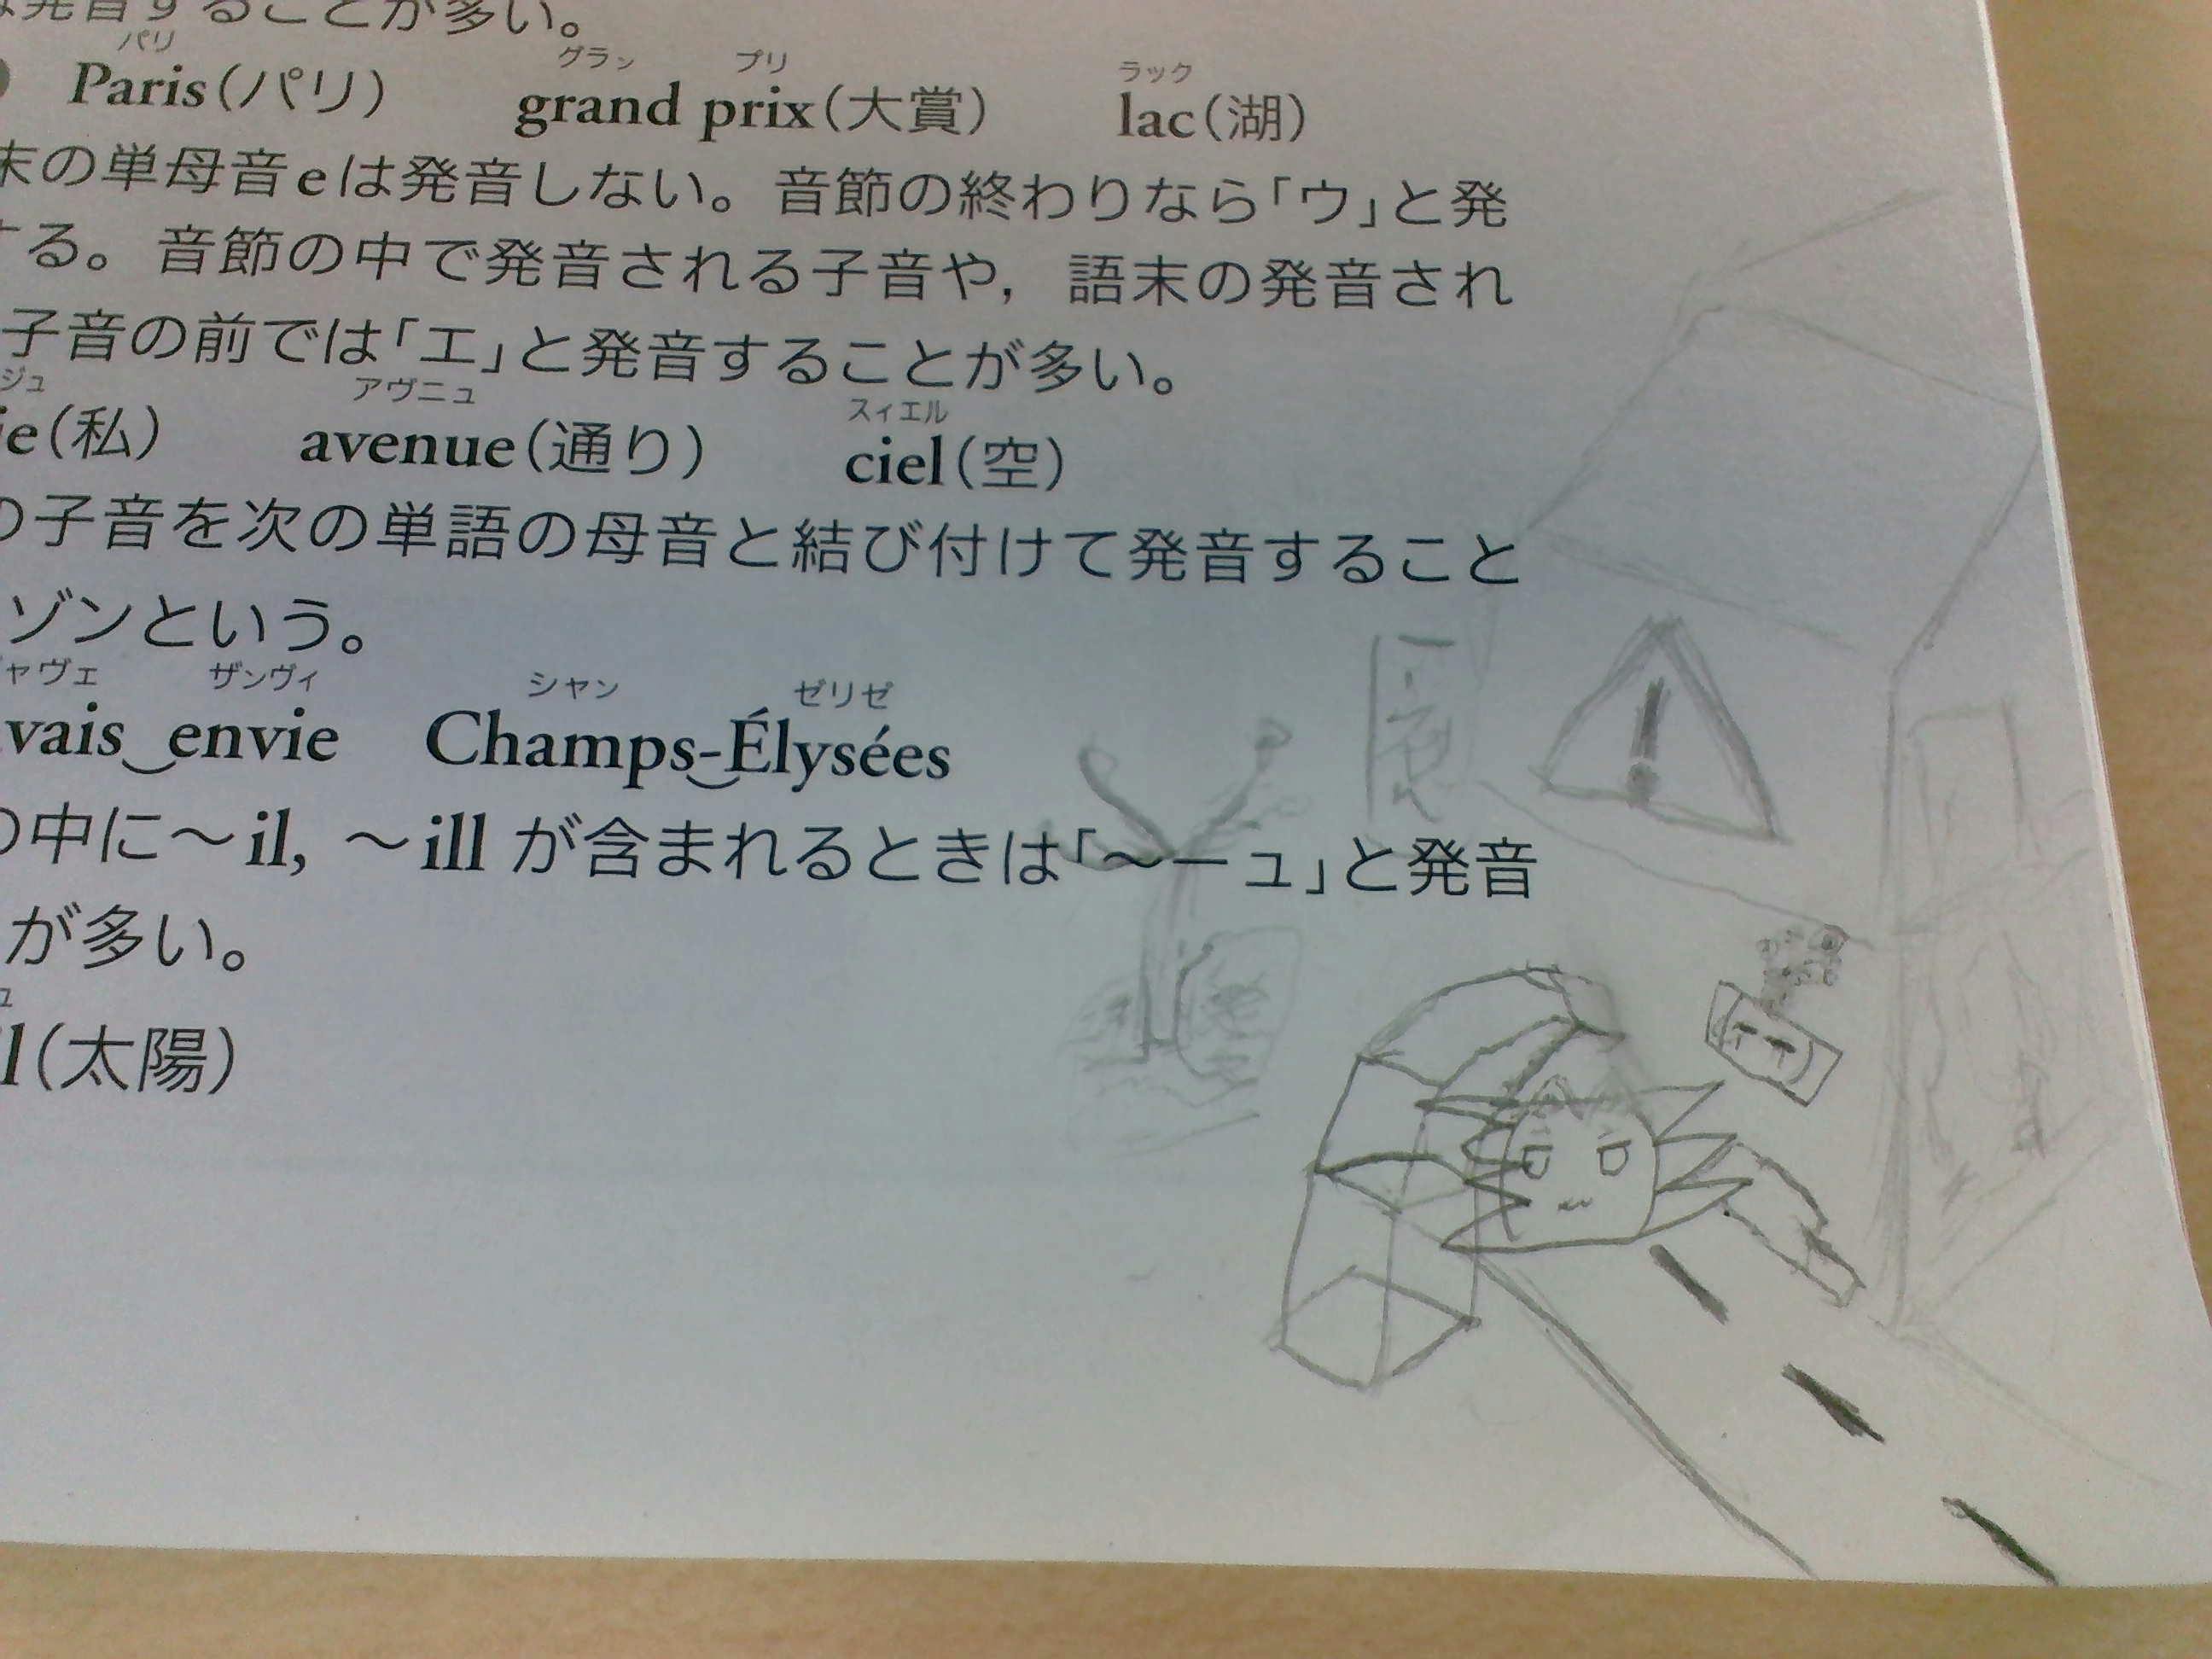 発音することが多い。
パリ グラン プリ ラック
Paris(パリ) grand prix(大賞) lac(湖)
末の単母音eは発音しない。音節の終わりなら「ウ」と発
する。音節の中で発音される子音や，語末の発音され
子音の前では「エ」と発音することが多い。
ジュ アヴニュ スィエル
je(私) avenue(通り) ciel(空)
の子音を次の単語の母音と結び付けて発音すること
ゾンという。
ャヴェ ザンヴィ シャン ゼリゼ
vais‿envie Champs‿-Élysées
の中に～il, ～ill が含まれるときは「～ーユ」と発音
が多い。
ユ
l(太陽)
!